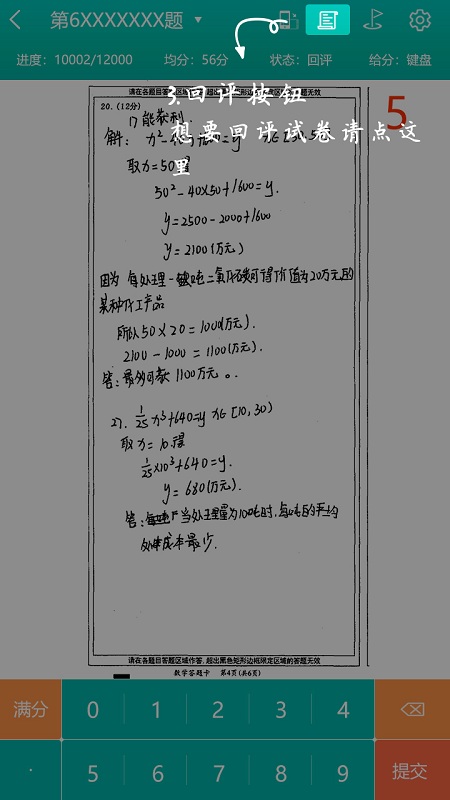 第6XXXXXXX题
进度：10002/12000 均分：56分 状态：回评 给分：键盘
请在各题目答题区域作答，超出黑色矩形边框限定区域的答案无效
3.回评按钮
想要回评试卷请点这里
5
20.（12分）
1) 能获利.
解：
取x=50得
50²-40×50+1600=y.
y=2500-2000+1600
y=2100(万元)
因为 每处理一吨二氧化碳可得价值为20万元的
某种化工产品
所以50×20=1000(万元).
2100-1000=1100(万元).
答：最多可获1100万元。
27. 1/25 x³+640=y x∈[10,30)
取x=10.得
1/25×10³+640=y.
y=680(万元).
答： 当处理量为10吨时,每吨的平均
处理成本最少.
请在各题目答题区域作答，超出黑色矩形边框限定区域的答案无效
数学答题卡 第4页(共6页)
满分 0 1 2 3 4
· 5 6 7 8 9 提交